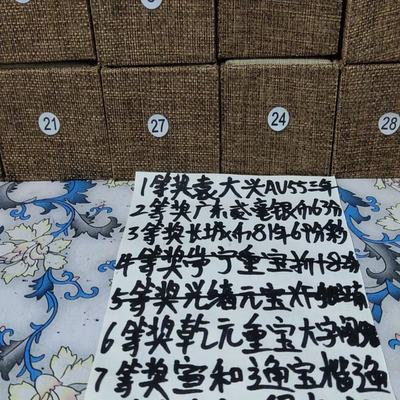 21 27 24 28
1等奖袁大头AU55三年
2等奖广东贰毫银币63分
3等奖长城币81年67分
4等奖崇宁重宝折
5等奖光绪元宝
6等奖乾元重宝大字
7等奖宣和通宝楷通